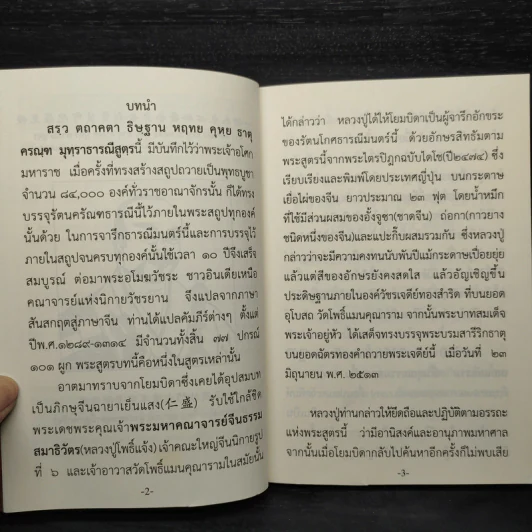 บทนำ
สรฺว ตถาคตา ธิษฺฐาน หฤทย คุหฺย ธาตุ
ครณฺฑ มุทฺราธารณีสูตรนี้ มีบันทึกไว้ว่าพระเจ้าอโศก
มหาราช เมื่อครั้งที่ทรงสร้างสถูปถวายเป็นพุทธบูชา
จำนวน ๘๔,๐๐๐ องค์ทั่วราชอาณาจักรนั้น ก็ได้ทรง
บรรจุรัตนครัณฑธารณีนี้ไว้ภายในพระสถูปทุกองค์
นั้นด้วย ในการจารึกธารณีมนตร์นี้และการบรรจุไว้
ภายในสถูปจนครบทุกองค์นั้นใช้เวลา ๑๐ ปีจึงเสร็จ
สมบูรณ์ ต่อมาพระอโมฆวัชระ ชาวอินเดียเหนือ
คณาจารย์แห่งนิกายวัชรยาน จึงแปลจากภาษา
สันสกฤตสู่ภาษาจีน ท่านได้แปลคัมภีร์ต่างๆ ตั้งแต่
ปีพ.ศ.๑๒๘๙-๑๓๑๔ มีจำนวนทั้งสิ้น ๗๗ ปกรณ์
๑๐๑ ผูก พระสูตรบทนี้คือหนึ่งในสูตรเหล่านั้น
อาตมาทราบจากโยมบิดาซึ่งเคยได้อุปสมบท
เป็นภิกษุจีนฉายาเย็นแสง(仁盛) รับใช้ใกล้ชิด
พระเดชพระคุณเจ้าพระมหาคณาจารย์จีนธรรม
สมาธิวัตร(หลวงปู่โพธิ์แจ้ง) เจ้าคณะใหญ่จีนนิกายรูป
ที่ ๖ และเจ้าอาวาสวัดโพธิ์แมนคุณารามในสมัยนั้น
-2-
ได้กล่าวว่า หลวงปู่ได้ให้โยมบิดาเป็นผู้จารึกอักขระ
ของรัตนโกศธารณีมนตร์นี้ ด้วยอักษรสิทธัมตาม
พระสูตรนี้จากพระไตรปิฎกฉบับไตโช(ปี๒๔๗๔) ซึ่ง
เรียบเรียงและพิมพ์โดยประเทศญี่ปุ่น บนกระดาษ
เยื่อไผ่ของจีน ยาวประมาณ ๒๓ ฟุต โดยน้ำหมึก
ที่ใช้มีส่วนผสมของอั้งจูซา(ชาดจีน) ถ่อกา(กาวยาง
ชนิดหนึ่งของจีน)และแปะกิ๊บผสมรวมกัน ซึ่งหลวงปู่
กล่าวว่าจะมีความคงทนนับพันปีแม้กระดาษเปื่อยยุ่ย
แล้วแต่สีของอักษรยังคงสดใส แล้วอัญเชิญขึ้น
ประดิษฐานภายในองค์วัชรเจดีย์ทองสำริด ที่บนยอด
อุโบสถ วัดโพธิ์แมนคุณาราม จากนั้นพระบาทสมเด็จ
พระเจ้าอยู่หัว ได้เสด็จทรงบรรจุพระบรมสารีริกธาตุ
บนยอดฉัตรทองคำถวายพระเจดีย์นี้ เมื่อวันที่ ๒๓
มิถุนายน พ.ศ. ๒๕๑๓
หลวงปู่ท่านกล่าวให้ยึดถือและปฏิบัติตามอรรถะ
แห่งพระสูตรนี้ ว่ามีอานิสงค์และอานุภาพมหาศาล
จากนั้นเมื่อโยมบิดากลับไปค้นหาอีกครั้งก็ไม่พบเสีย
-3-